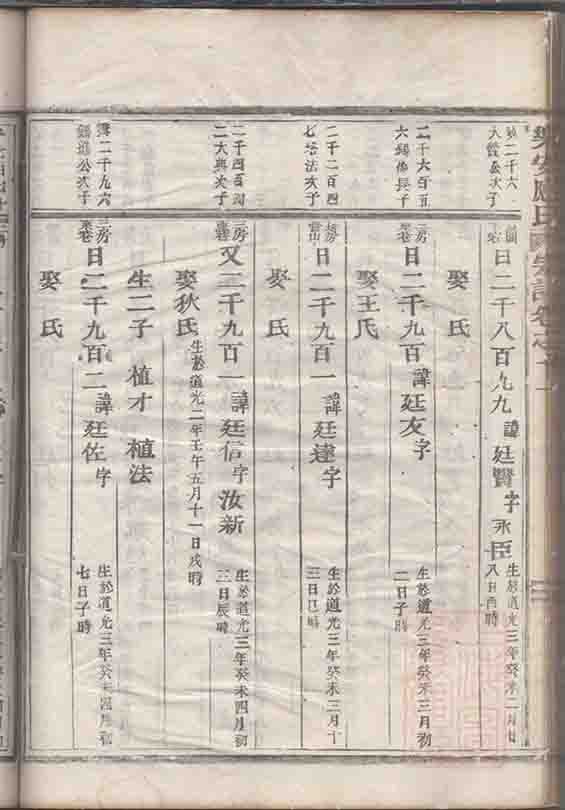 樂安 氏 宗譜卷之
二千六
大 公次子
日二千八百九九 諱廷賢 字永臣
生於道光三年癸未二月廿
八日酉時
娶 氏
二千六百五
六錫 長子
三房
東巷
日二千九百 諱廷友 字
生於道光三年癸未三月初
二日子時
娶王氏
二千二百四
七 法次子
日二千九百一 諱廷達 字
生於道光三年癸未三月十
三日巳時
娶 氏
二千四百
二大興次子
三房
又二千九百一 諱廷信 字汝新
生於道光三年癸未四月初
三日辰時
娶狄氏 生於道光二年壬午五月十一日戌時
生二子 植才 植法
二千九六
錫進公次子
三房
東巷
日二千九百二 諱廷佐 字
生於道光三年癸未四月初
七日子時
娶 氏